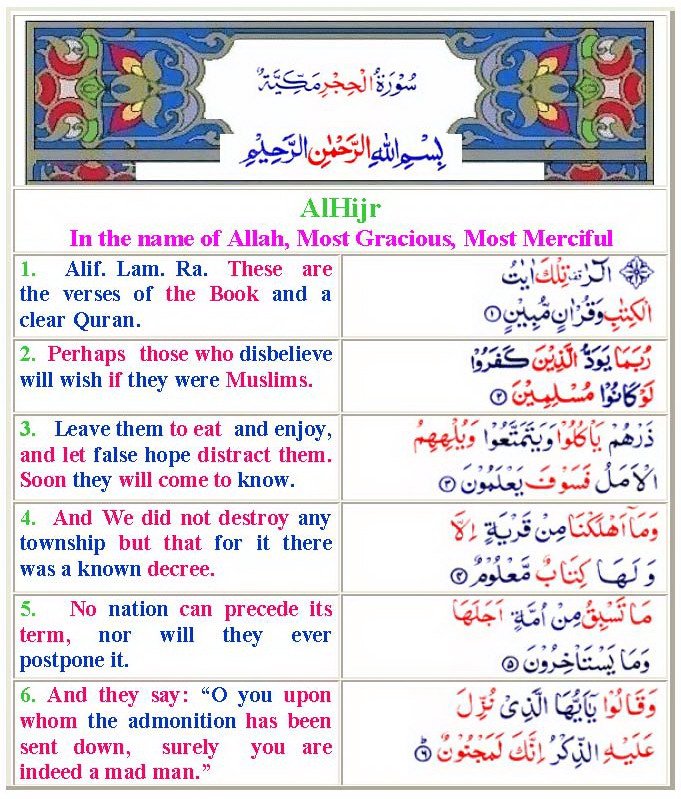 سُوْرَةُ الْحِجْرِ مَكِّيَّةٌ
بِسْمِ اللهِ الرَّحْمٰنِ الرَّحِيْمِ
AlHijr
In the name of Allah, Most Gracious, Most Merciful
1. Alif. Lam. Ra. These are
the verses of the Book and a
clear Quran.
الٓرٰ تِلْكَ اٰيٰتُ
الْكِتٰبِ وَقُرْاٰنٍ مُّبِيْنٍ ۱
2. Perhaps those who disbelieve
will wish if they were Muslims.
رُبَمَا يَوَدُّ الَّذِيْنَ كَفَرُوْا
لَوْ كَانُوْا مُسْلِمِيْنَ ۲
3. Leave them to eat and enjoy,
and let false hope distract them.
Soon they will come to know.
ذَرْهُمْ يَاْكُلُوْا وَيَتَمَتَّعُوْا وَيُلْهِهِمُ
الْاَمَلُ فَسَوْفَ يَعْلَمُوْنَ ۳
4. And We did not destroy any
township but that for it there
was a known decree.
وَمَاۤ اَهْلَكْنَا مِنْ قَرْيَةٍ اِلَّا
وَلَهَا كِتَابٌ مَّعْلُوْمٌ ۴
5. No nation can precede its
term, nor will they ever
postpone it.
مَا تَسْبِقُ مِنْ اُمَّةٍ اَجَلَهَا
وَمَا يَسْتَاْخِرُوْنَ ۵
6. And they say: “O you upon
whom the admonition has been
sent down, surely you are
indeed a mad man.”
وَقَالُوْا يٰۤاَيُّهَا الَّذِىْ نُزِّلَ
عَلَيْهِ الذِّكْرُ اِنَّكَ لَمَجْنُوْنٌ ۶ ط